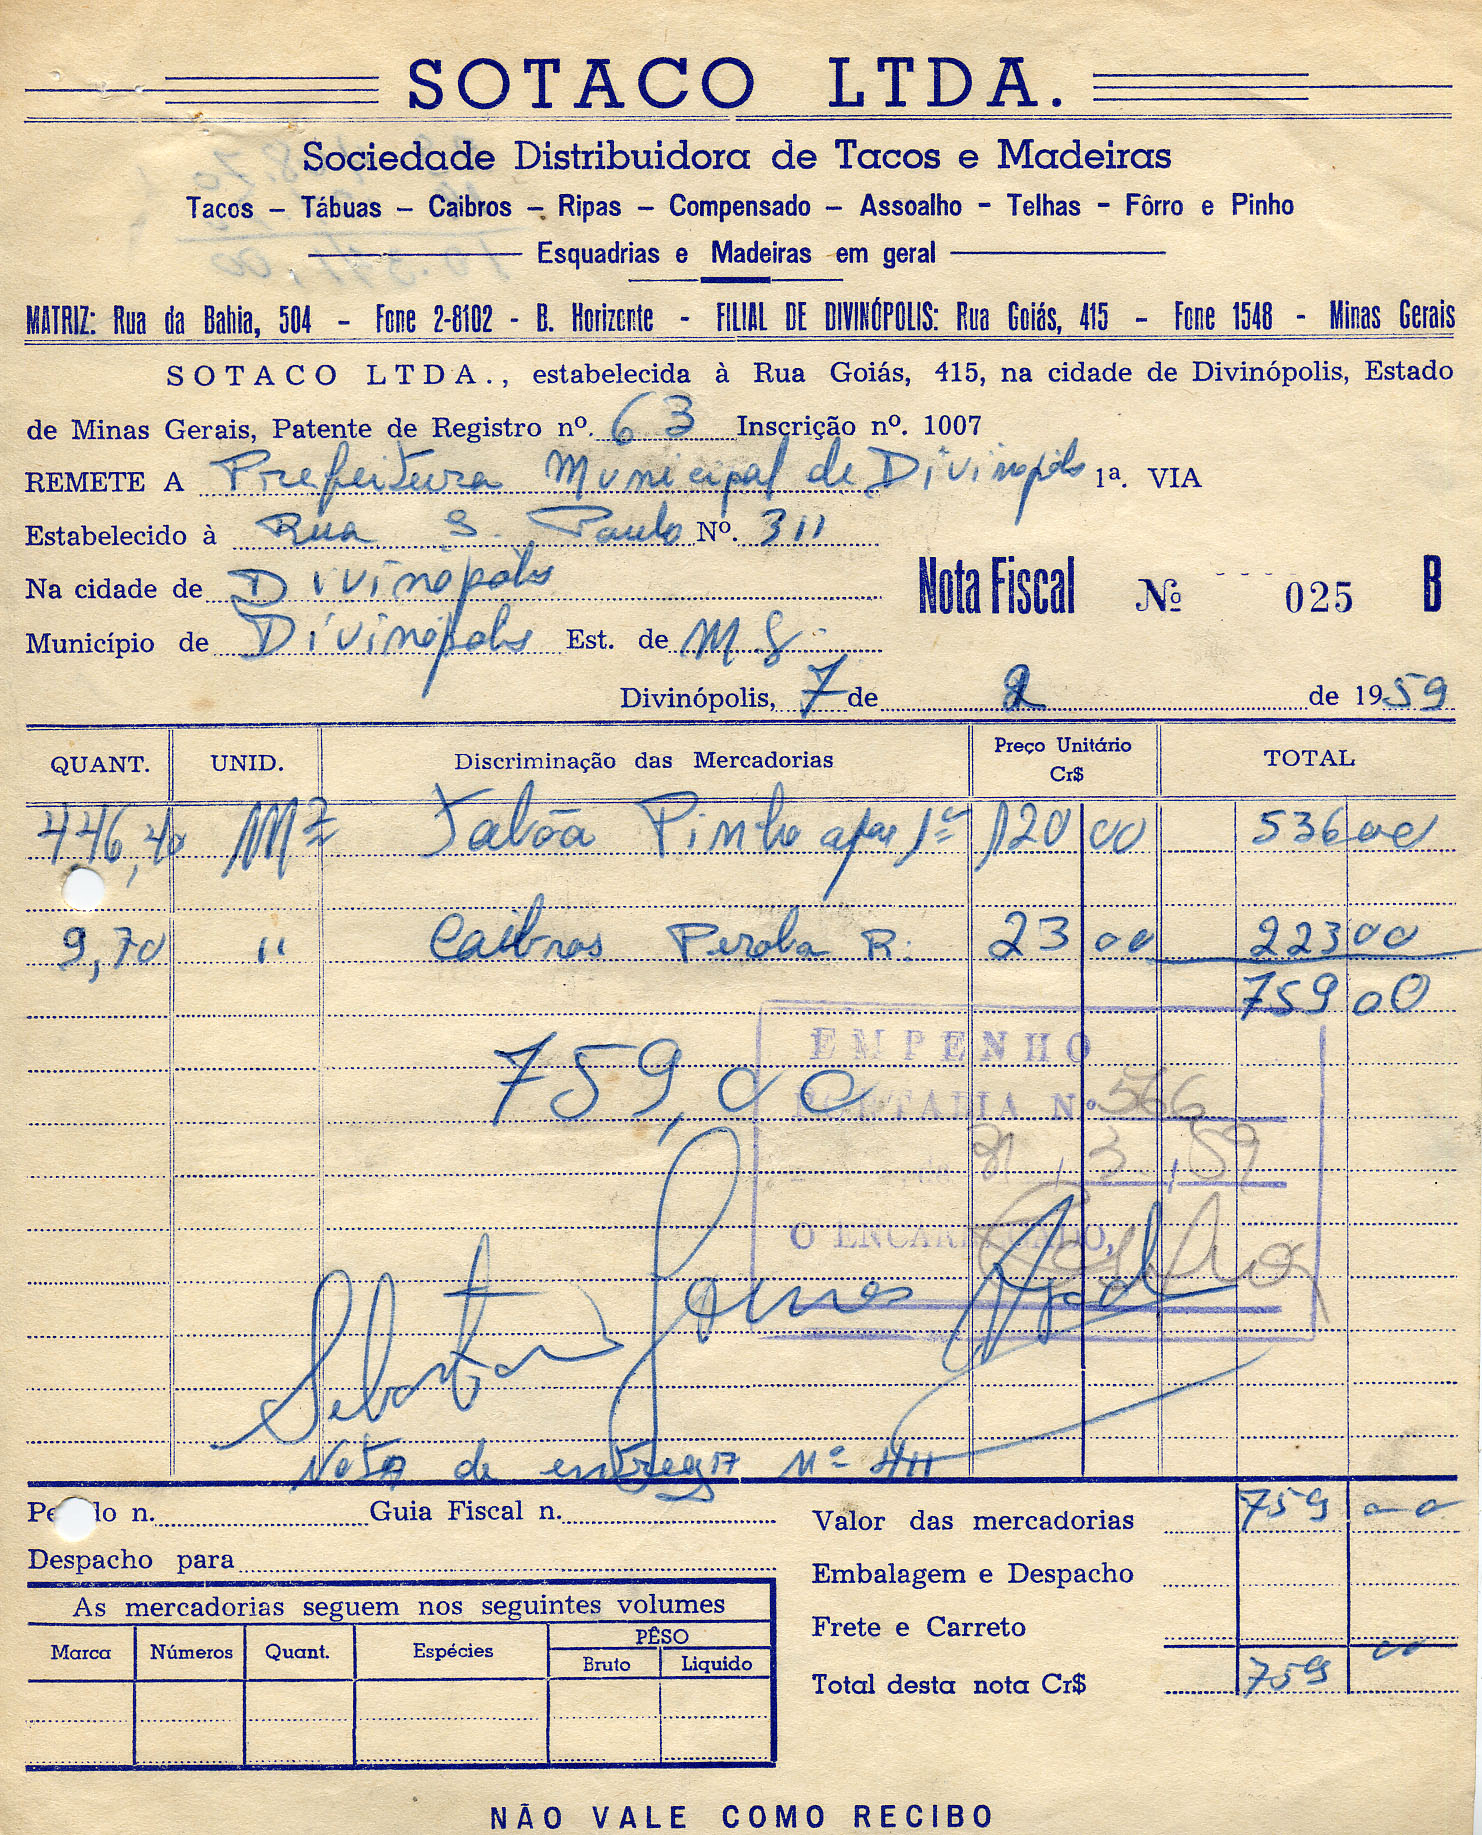 SOTACO LTDA.
Sociedade Distribuidora de Tacos e Madeiras
Tacos – Tábuas – Caibros – Ripas – Compensado – Assoalho - Telhas - Fôrro e Pinho
Esquadrias e Madeiras em geral
MATRIZ: Rua da Bahia, 504 - Fone 2-8102 - B. Horizonte - FILIAL DE DIVINÓPOLIS: Rua Goiás, 415 - Fone 1548 - Minas Gerais
SOTACO LTDA., estabelecida à Rua Goiás, 415, na cidade de Divinópolis, Estado
de Minas Gerais, Patente de Registro nº. 63 Inscrição nº. 1007
REMETE A Prefeitura Municipal de Divinópolis 1ª. VIA
Estabelecido à Rua S. Paulo Nº. 311
Na cidade de Divinópolis
Nota Fiscal Nº 025 B
Município de Divinópolis Est. de M G.
Divinópolis, 7 de 2 de 1959
QUANT. UNID. Discriminação das Mercadorias Preço Unitário Cr$ TOTAL
M2 Pinho 120 00 536 00
9,70 " Caibros Peroba R. 23 00 223 00
759 00
759,00
EMPENHO
PORTARIA Nº 566
31 / 3 / 59
O ENCARREGADO,
Sebastião Gomes
Nota de entrega Nº 411
Pedido n. Guia Fiscal n.
Despacho para
Valor das mercadorias 759 00
Embalagem e Despacho
Frete e Carreto
Total desta nota Cr$ 759 00
As mercadorias seguem nos seguintes volumes
Marca Números Quant. Espécies PÊSO
Bruto Liquido
NÃO VALE COMO RECIBO